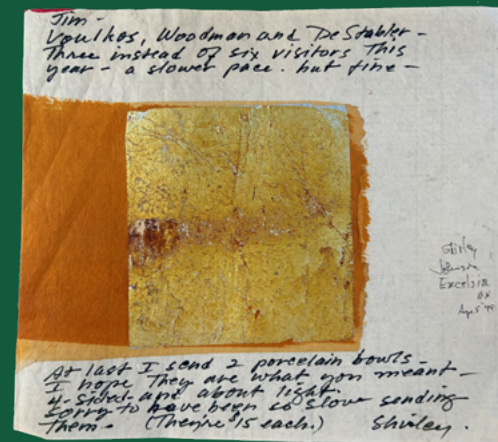 Jim-
Voulkos, Woodman and DeStabler-
Three instead of six visitors This
year - a slower pace. but fine-
Shirley
Johnson
Excelsior
At last I send 2 porcelain bowls-
I hope They are what you meant-
4-sided and about light.
Sorry to have been so slow sending
Them- (They're 15 each.) Shirley.